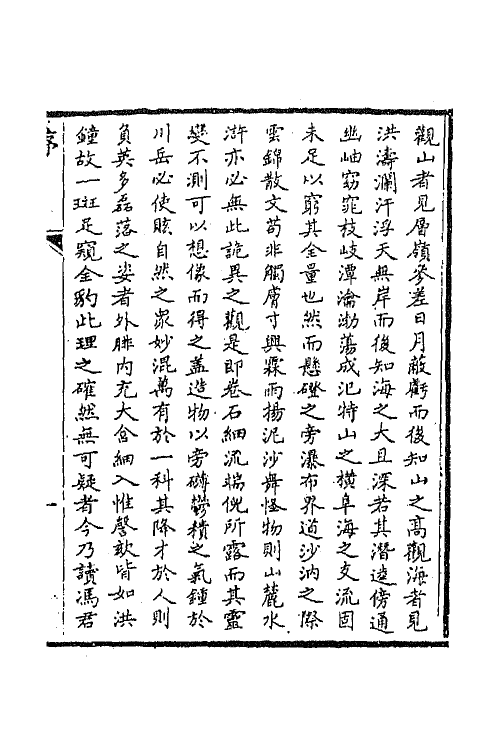 觀山者見層嶺參差日月蔽虧而後知山之高觀海者見
洪濤瀾汗浮天無岸而後知海之大且深若其潛逵傍通
幽岫窈窕枝岐潭瀹渤蕩成汜特山之橫阜海之支流固
未足以窮其全量也然而懸磴之旁瀑布界道沙汭之際
雲錦散文苟非觸膚寸興霖雨揚泥沙舞怪物則山麓水
滸亦必無此詭異之觀是即卷石細流端倪所露而其靈
變不測可以想像而得之蓋造物以旁礴鬱積之氣鍾於
川岳必使賅自然之衆妙混萬有於一科其降才於人則
負英多磊落之姿者外腓內充大含細入惟謦欬皆如洪
鐘故一斑足窺全豹此理之確然無可疑者今乃讀馮君
序
一